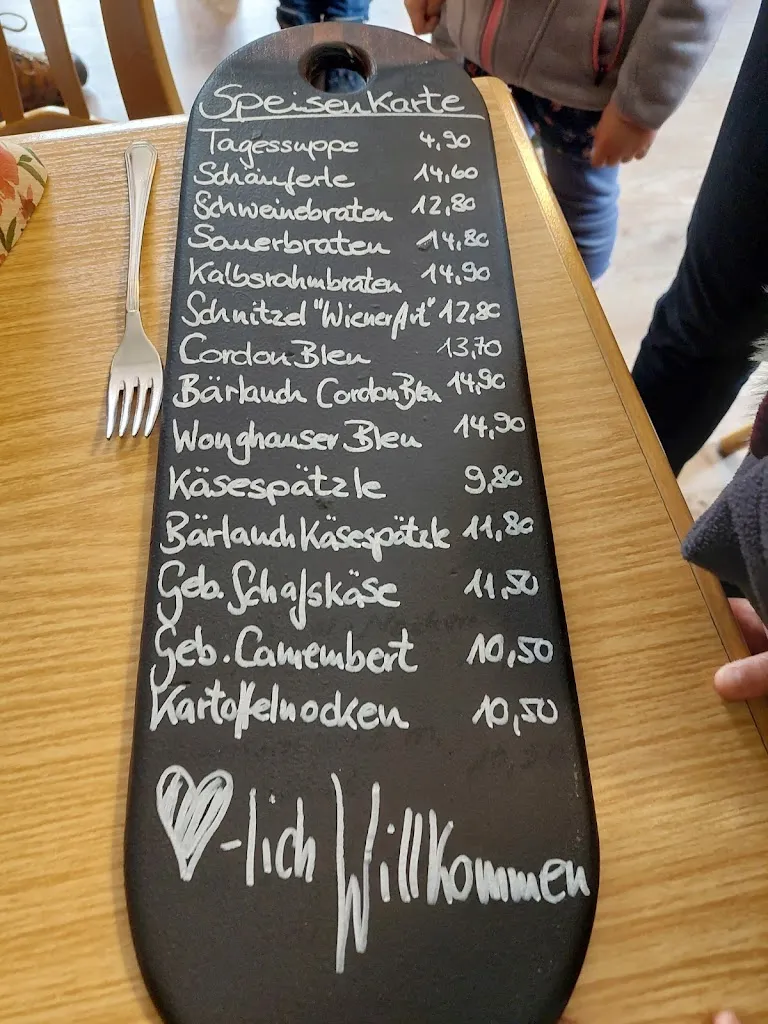 Speisenkarte
Tagessuppe 4,90
Schäuferle 14,60
Schweinebraten 12,80
Sauerbraten 14,80
Kalbsrahmbraten 14,90
Schnitzel "Wiener Art" 12,80
Cordon Bleu 13,70
Bärlauch Cordon Bleu 14,90
Wonghauser Bleu 14,90
Käsespätzle 9,80
Bärlauch Käsespätzle 11,80
Geb. Schafskäse 11,50
Geb. Camembert 10,50
Kartoffelnocken 10,50
♥-lich Willkommen